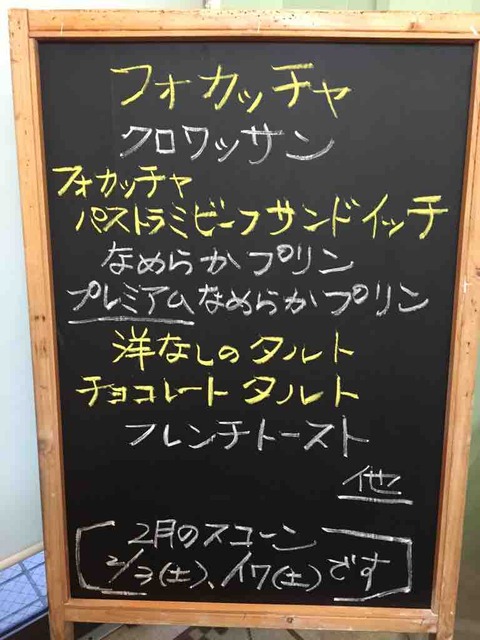 フォカッチャ
クロワッサン
フォカッチャ
パストラミビーフサンドイッチ
なめらかプリン
プレミアムなめらかプリン
洋なしのタルト
チョコレートタルト
フレンチトースト
他
2月のスコーン
2/3(土)、17(土)です